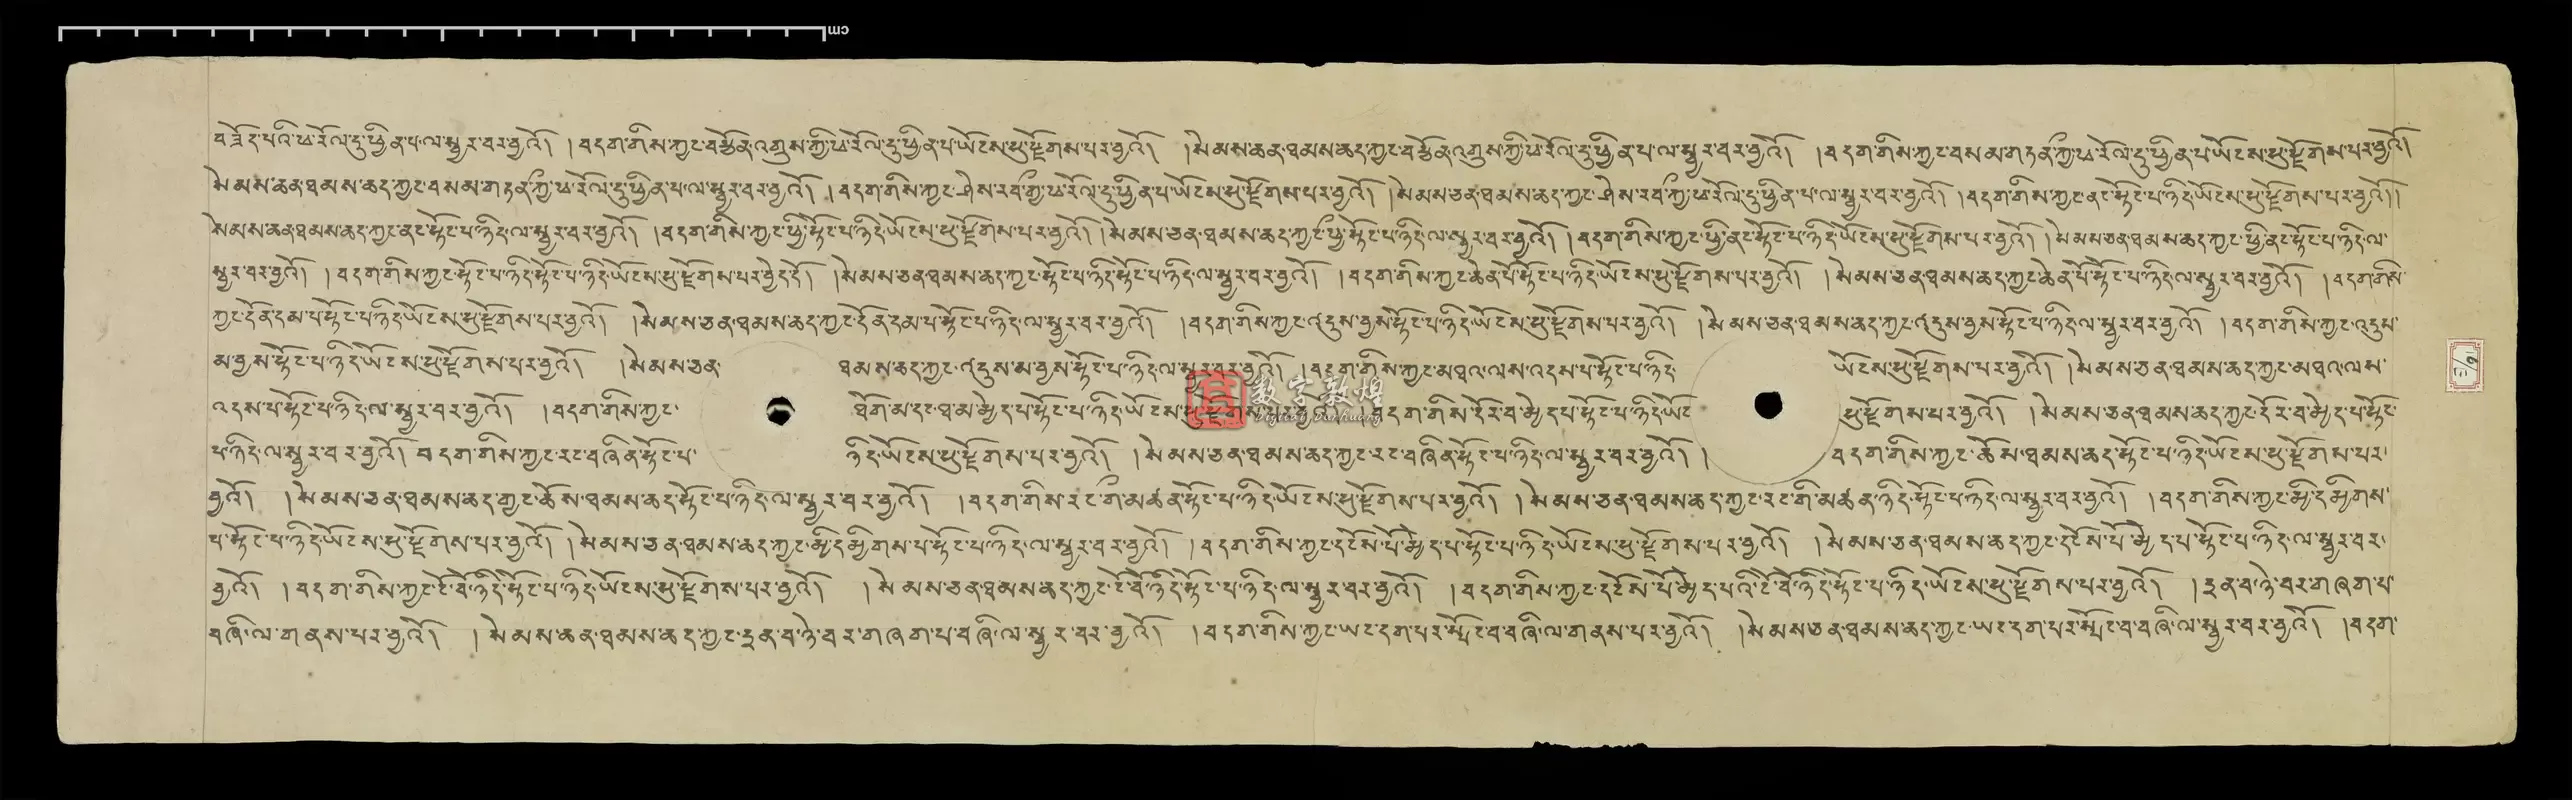 བཟོད་པའི་ཕ་རོལ་དུ་ཕྱིན་པ་ལ་སྦྱར་བར་བྱའོ། །བདག་གིས་ཀྱང་བརྩོན་འགྲུས་ཀྱི་ཕ་རོལ་དུ་ཕྱིན་པ་ཡོངས་སུ་རྫོགས་པར་བྱའོ། །སེམས་ཆན་ཐམས་ཆད་ཀྱང་བརྩོན་འགྲུས་ཀྱི་ཕ་རོལ་དུ་ཕྱིན་པ་ལ་སྦྱར་བར་བྱའོ། །བདག་གིས་ཀྱང་བསམ་གཏན་ཀྱི་ཕ་རོལ་དུ་ཕྱིན་པ་ཡོངས་སུ་རྫོགས་པར་བྱའོ།
སེམས་ཆན་ཐམས་ཆད་ཀྱང་བསམ་གཏན་ཀྱི་ཕ་རོལ་དུ་ཕྱིན་པ་ལ་སྦྱར་བར་བྱའོ། །བདག་གིས་ཀྱང་ཤེས་རབ་ཀྱི་ཕ་རོལ་དུ་ཕྱིན་པ་ཡོངས་སུ་རྫོགས་པར་བྱའོ། །སེམས་ཅན་ཐམས་ཆད་ཀྱང་ཤེས་རབ་ཀྱི་ཕ་རོལ་དུ་ཕྱིན་པ་ལ་སྦྱར་བར་བྱའོ། །བདག་གིས་ཀྱང་ནང་སྟོང་པ་ཉིད་ཡོངས་སུ་རྫོགས་པར་བྱའོ།།
སེམས་ཆན་ཐམས་ཆད་ཀྱང་ནང་སྟོང་པ་ཉིད་ལ་སྦྱར་བར་བྱའོ། །བདག་གིས་ཀྱང་ཕྱི་སྟོང་པ་ཉིད་ཡོངས་སུ་རྫོགས་པར་བྱའོ། །སེམས་ཅན་ཐམས་ཆད་ཀྱང་ཕྱི་སྟོང་པ་ཉིད་ལ་སྦྱར་བར་བྱའོ། །བདག་གིས་ཀྱང་ཕྱི་ནང་སྟོང་པ་ཉིད་ཡོངས་སུ་རྫོགས་པར་བྱའོ། །སེམས་ཅན་ཐམས་ཆད་ཀྱང་ཕྱི་ནང་སྟོང་པ་ཉིད་ལ་
སྦྱར་བར་བྱའོ། །བདག་གིས་ཀྱང་སྟོང་པ་ཉིད་སྟོང་པ་ཉིད་ཡོངས་སུ་རྫོགས་པར་བྱེད་དོ། །སེམས་ཅན་ཐམས་ཆད་ཀྱང་སྟོང་པ་ཉིད་སྟོང་པ་ཉིད་ལ་སྦྱར་བར་བྱའོ། །བདག་གིས་ཀྱང་ཆེན་པོ་སྟོང་པ་ཉིད་ཡོངས་སུ་རྫོགས་པར་བྱའོ། །སེམས་ཅན་ཐམས་ཆད་ཀྱང་ཆེན་པོ་སྟོང་པ་ཉིད་ལ་སྦྱར་བར་བྱའོ། །བདག་གིས་
ཀྱང་དོན་དམ་པ་སྟོང་པ་ཉིད་ཡོངས་སུ་རྫོགས་པར་བྱའོ། །སེམས་ཅན་ཐམས་ཆད་ཀྱང་དོན་དམ་པ་སྟོང་པ་ཉིད་ལ་སྦྱར་བར་བྱའོ། །བདག་གིས་ཀྱང་འདུས་བྱས་སྟོང་པ་ཉིད་ཡོངས་སུ་རྫོགས་པར་བྱའོ། །སེམས་ཅན་ཐམས་ཆད་ཀྱང་འདུས་བྱས་སྟོང་པ་ཉིད་ལ་སྦྱར་བར་བྱའོ། །བདག་གིས་ཀྱང་འདུས་
མ་བྱས་སྟོང་པ་ཉིད་ཡོངས་སུ་རྫོགས་པར་བྱའོ། །སེམས་ཅན་ ཐམས་ཆད་ཀྱང་འདུས་མ་བྱས་སྟོང་པ་ཉིད་ལ་སྦྱར་བར་བྱའོ། །བདག་གིས་ཀྱང་མཐའ་ལས་འདས་པ་སྟོང་པ་ཉིད་ ཡོངས་སུ་རྫོགས་པར་བྱའོ། །སེམས་ཅན་ཐམས་ཆད་ཀྱང་མཐའ་ལས་
འདས་པ་སྟོང་པ་ཉིད་ལ་སྦྱར་བར་བྱའོ། །བདག་གིས་ཀྱང་ ཐོག་མ་དང་ཐ་མ་མྱེད་པ་སྟོང་པ་ཉིད་ཡོངས་སུ་རྫོགས་པར་བྱའོ། །བདག་གིས་དོར་བ་མྱེད་པ་སྟོང་པ་ཉིད་ཡོང སུ་རྫོགས་པར་བྱའོ། །སེམས་ཅན་ཐམས་ཆད་ཀྱང་དོར་བ་མྱེད་པ་སྟོང་
པ་ཉིད་ལ་སྦྱར་བར་བྱའོ། བདག་གིས་ཀྱང་རང་བཞིན་སྟོང་པ་ ཉིད་ཡོངས་སུ་རྫོགས་པར་བྱའོ། །སེམས་ཅན་ཐམས་ཆད་ཀྱང་རང་བཞིན་སྟོང་པ་ཉིད་ལ་སྦྱར་བར་བྱའོ། ། བདག་གིས་ཀྱང་ཆོས་ཐམས་ཆད་སྟོང་པ་ཉིད་ཡོངས་སུ་རྫོགས་པར་
བྱའོ། །སེམས་ཅན་ཐམས་ཆད་ཀྱང་ཆོས་ཐམས་ཆད་སྟོང་པ་ཉིད་ལ་སྦྱར་བར་བྱའོ། །བདག་གིས་རང་གི་མཚན་སྟོང་པ་ཉིད་ཡོངས་སུ་རྫོགས་པར་བྱའོ། །སེམས་ཅན་ཐམས་ཆད་ཀྱང་རང་གི་མཚན་ཉིད་སྟོང་པ་ཉིད་ལ་སྦྱར་བར་བྱའོ། །བདག་གིས་ཀྱང་མྱི་དམྱིགས་
པ་སྟོང་པ་ཉིད་ཡོངས་སུ་རྫོགས་པར་བྱའོ། །སེམས་ཅན་ཐམས་ཆད་ཀྱང་མྱི་དམྱིགས་པ་སྟོང་པ་ཉིད་ལ་སྦྱར་བར་བྱའོ། །བདག་གིས་ཀྱང་དངོས་པོ་མྱེད་པ་སྟོང་པ་ཉིད་ཡོངས་སུ་རྫོགས་པར་བྱའོ། །སེམས་ཅན་ཐམས་ཆད་ཀྱང་དངོས་པོ་མྱེད་པ་སྟོང་པ་ཉིད་ལ་སྦྱར་བར་
བྱའོ། །བདག་གིས་ཀྱང་ངོ་བོ་ཉིད་སྟོང་པ་ཉིད་ཡོངས་སུ་རྫོགས་པར་བྱའོ། །སེམས་ཅན་ཐམས་ཆད་ཀྱང་ངོ་བོ་ཉིད་སྟོང་པ་ཉིད་ལ་སྦྱར་བར་བྱའོ། །བདག་གིས་ཀྱང་དངོས་པོ་མྱེད་པའི་ངོ་བོ་ཉིད་སྟོང་པ་ཉིད་ཡོངས་སུ་རྫོགས་པར་བྱའོ། །དྲན་བ་ཉེ་བར་གཞག་པ་
བཞི་ལ་གནས་པར་བྱའོ། །སེམས་ཆན་ཐམས་ཆད་ཀྱང་དྲན་བ་ཉེ་བར་གཞག་པ་བཞི་ལ་སྦྱར་བར་བྱའོ། །བདག་གིས་ཀྱང་ཡང་དག་པར་སྤོང་བ་བཞི་ལ་གནས་པར་བྱའོ། །སེམས་ཅན་ཐམས་ཆད་ཀྱང་ཡང་དག་པར་སྤོང་བ་བཞི་ལ་སྦྱར་བར་བྱའོ། །བདག་